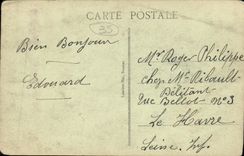 CARTE POSTALE
35
Bien Bonjour
Edouard
Mr Roger Philippe
chez Mr Ribault
Débitant
Rue Bellot No 3
Le Havre
Seine Inf.